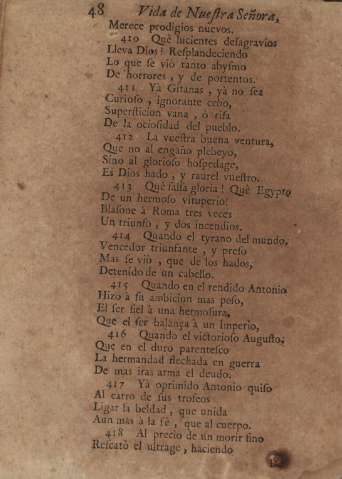 48 Vida de Nueſtra Señora,
Merece prodigios nuevos.
410 Què lucientes deſagravios
Lleva Dios! Reſplandeciendo
Lo que ſe viò tanto abyſmo
De horrores, y de portentos.
411 Yà Gitanas, yà no ſea
Curioſo, ignorante cebo,
Superſticion vana, ò riſa
De la ocioſidad del pueblo.
412 La vueſtra buena ventura,
Que no al engaño plebeyo,
Sino al glorioſo hoſpedage,
Es Dios hado, y laurel vueſtro.
413 Què falſa gloria! Què Egypto
De un hermoſo vituperio!
Blaſone à Roma tres veces
Un triunfo, y dos incendios.
414 Quando el tyrano del mundo,
Vencedor triunfante, y preſo
Mas ſe viò, que de los hados,
Detenido de un cabello.
415 Quando en el rendido Antonio
Hizo à ſu ambicion mas peſo,
El ſer fiel à una hermoſura,
Que el ſer balança à un Imperio,
416 Quando el victorioſo Auguſto,
Que en el duro parenteſco
La hermandad flechada en guerra
De mas iras arma el deudo.
417 Yà oprimido Antonio quiſo
Al carro de ſus trofeos
Ligar la beldad, que unida
Aun mas à la fè, que al cuerpo.
418 Al precio de un morir fino
Reſcatò el ultrage, haciendo